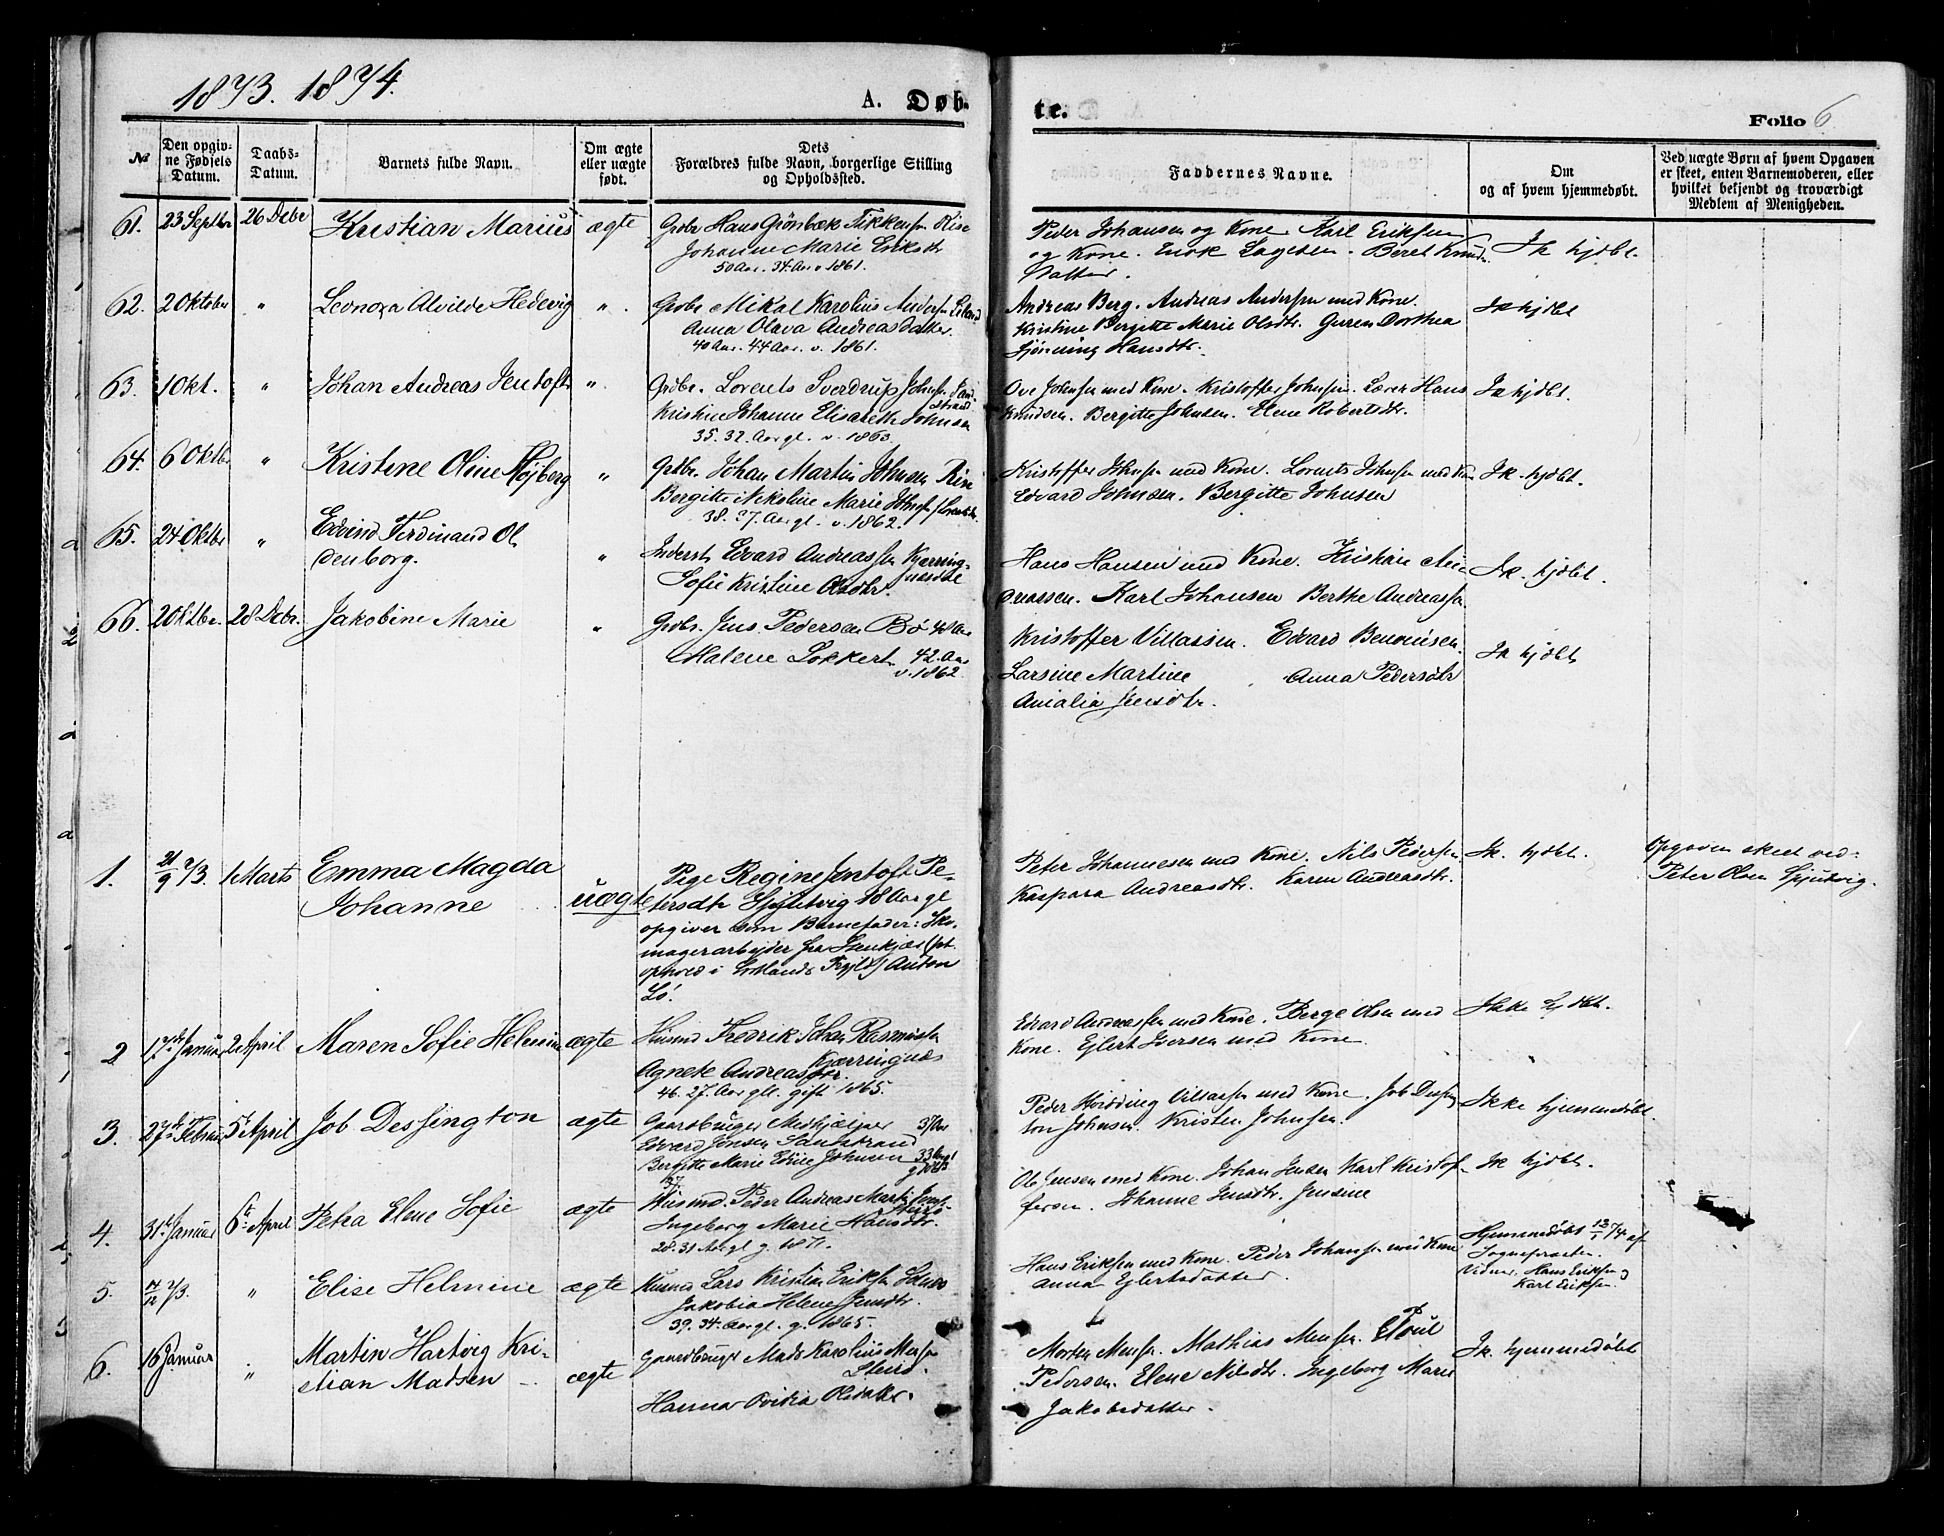 1873. 1874.
A. Døb-
te.
Folio 6
№
Den opgiv-
ne Fødsels
Datum.
Daabs-
Datum.
Barnets fulde Navn.
Om ægte
eller uægte
født.
Dets
Forældres fulde Navn, borgerlige Stilling
og Opholdssted.
Faddernes Navne.
Om
og af hvem hjemmedøbt.
Ved uægte Børn af hvem Opgaven
er skeet, enten Barnemoderen, eller
hvilket bekjendt og troværdigt
Medlem af Menigheden.
61. 23 Septbr 26 Debr Kristian Marius ægte
Gdbr Hans Grönbæk Rise
Johanne Marie Eriksdtr
50 Aar. 34 Aar v 1861.
Peder Johansen og Kone Karl Eriksen
og Kone. Enok Beret Knuds
datter.
Ik hjdbt.
62. 2 Oktober " Leonora Alvilde Hedevig "
Gdbr Mikal Karolius Andersen
Anna Olava Andreasdatter.
40 Aar. 44 Aar. v. 1861.
Andreas Berg. Andreas Andersen med Kone.
Kristine Bergitte Marie Olsdtr. Guren Dorthea
Hansdtr.
Ik hjdbt
63. 1 Okt. " Johan Andreas Jentoft "
Grdbr. Lorents Sverdrup Johnsen Sand-
strand
Kristine Johanne Elisabeth Johnsen
35. 32. Aar gl. v. 1863.
Ove Johnsen med Kone. Kristoffer Johnsen. Lærer Hans
Knudsen. Bergitte Johnsen. Elene Robertsdtr.
Ik hjdbt.
64. 6 Oktbr " Kristine Oline Højberg "
Grdbr. Johan Martin Johnsen
Bergitte Nikoline Marie
38. 37. Aar gl. v. 1862.
Kristoffer Johnsen med Kone. Lorents Johnsen med Kone
Edvard Johnsen. Bergitte Johnsen
Ik. hjdbt.
65. 24 Oktbr " Edvind Ferdinand Ol
denborg. "
Inderst Edvard Andreassen Kjærring-
næsdal
Sofie Kristine Olsdtr.
Hans Hansen med Kone. Kristian An-
dreassen. Karl Johansen Berthe Andreassen
Ik. hjdbt.
66. 20 Oktbr. 28 Debr. Jakobine Marie "
Grdbr. Jens Pedersen Bö
Malene Lokkert 42. Aar
v. 1862
Kristoffer Villassen. Edvard Benonisen.
Larsine Martine Anna Pedersdtr
Amalia Jensdtr.
Ik hjdbt
1. 21/9 73. 1 Marts Emma Magda
Johanne uægte
Pige Regine Jentoft Pe-
tersdtr 18 Aar gl
opgiver som Barnefader: Sko-
magerarbejder fra Stenkjær (pt.
ophold i Anton
Lö.
Peter Johannesen med Kone. Nils Pedersen
Kaspara Andreasdtr. Karen Andreasdtr.
Ik. hjdbt.
Opgaven skeet ved
Peter Olsen
2 12te Januar 2 April Maren Sofie Helmine ægte
Husmd Fredrik Johan Rasmussen
Kjærringnæs
Agnete Andreasdtr.
46. 27. Aar gl. gift 1865.
Edvard Andreassen med Kone. Berge Olsen med
Kone. Ejlert Iversen med Kone.
Ikke hjdbt.
3. 27de Februar 5te April Job Dessington ægte
Gaardbruger 37 Aar
Edvard Jonsen Sandstrand
Bergitte Marie Edine Johnsen 33 Aar gl
Peder Hvidding Villassen med Kone. Job Dessing
ton Johnsen. Kristen Johnsen.
Ikke hjemmedöbt.
4. 31te Januar 6te April Petra Elene Sofie ægte
Husmd. Peder Andreas
Ingeborg Marie Hansdtr.
28. 31 Aar gl g. 1871.
Ole Jensen med Kone. Johan Jensen Karl Kristof-
fersen. Johanne Jensdtr. Jensine
Ik hjdbt.
5. 14/12 73. " Elise Helmine ægte
Husmd Lars Kristian Eriksen
Jakobia Helene Jensdtr.
39. 34. Aar gl. g. 1865.
Hans Eriksen med Kone. Peder Johansen med Kone
Anna Ejlertsdatter.
Hjemmedöbt 13/1 74 af
Sognepræsten.
Vidner. Hans Eriksen og
Karl Eriksen.
6. 16 Januar " Martin Hartvig Kri-
stian Madsen ægte
Gaardbruger Mads Karolius Mensen
Hanna Ovidia Olsdatter.
Morten Mensen. Mathias Mensen. Poul
Pedersen. Elene Nilsdtr. Ingeborg Marie
Jakobsdatter.
Ik. hjemmedöbt